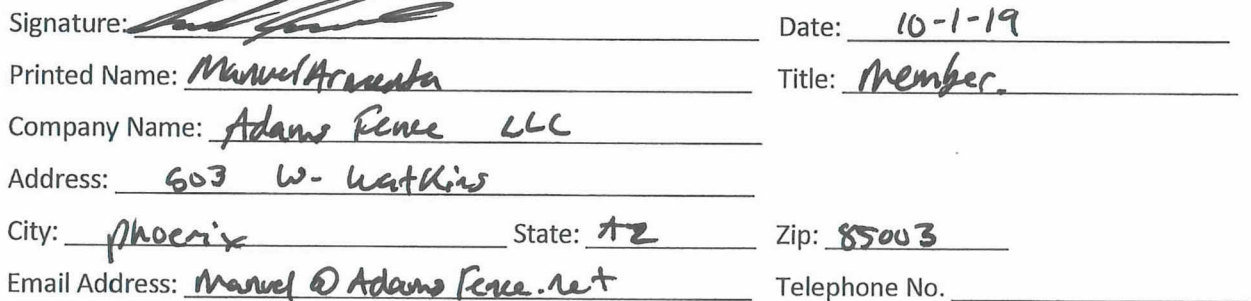 Signature: Date: 10-1-19
Printed Name: Manuel Armenta Title: Member.
Company Name: Adams Fence LLC
Address: 603 W- Watkins
City: Phoenix State: AZ Zip: 85003
Email Address: Manuel @ Adams Fence.net Telephone No.